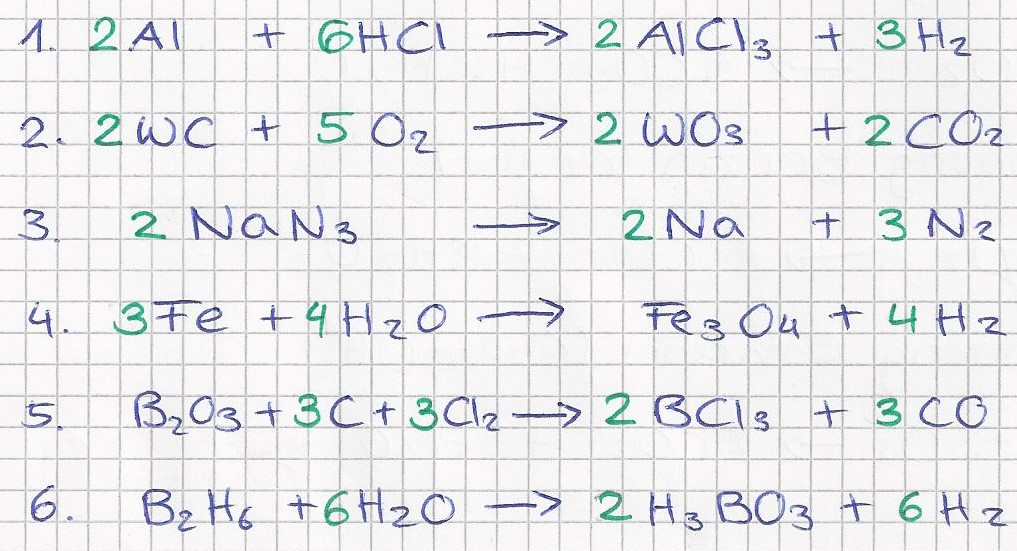 1. 2Al + 6HCl → 2AlCl₃ + 3H₂
2. 2WC + 5O₂ → 2WO₃ + 2CO₂
3. 2NaN₃ → 2Na + 3N₂
4. 3Fe + 4H₂O → Fe₃O₄ + 4H₂
5. B₂O₃ + 3C + 3Cl₂ → 2BCl₃ + 3CO
6. B₂H₆ + 6H₂O → 2H₃BO₃ + 6H₂